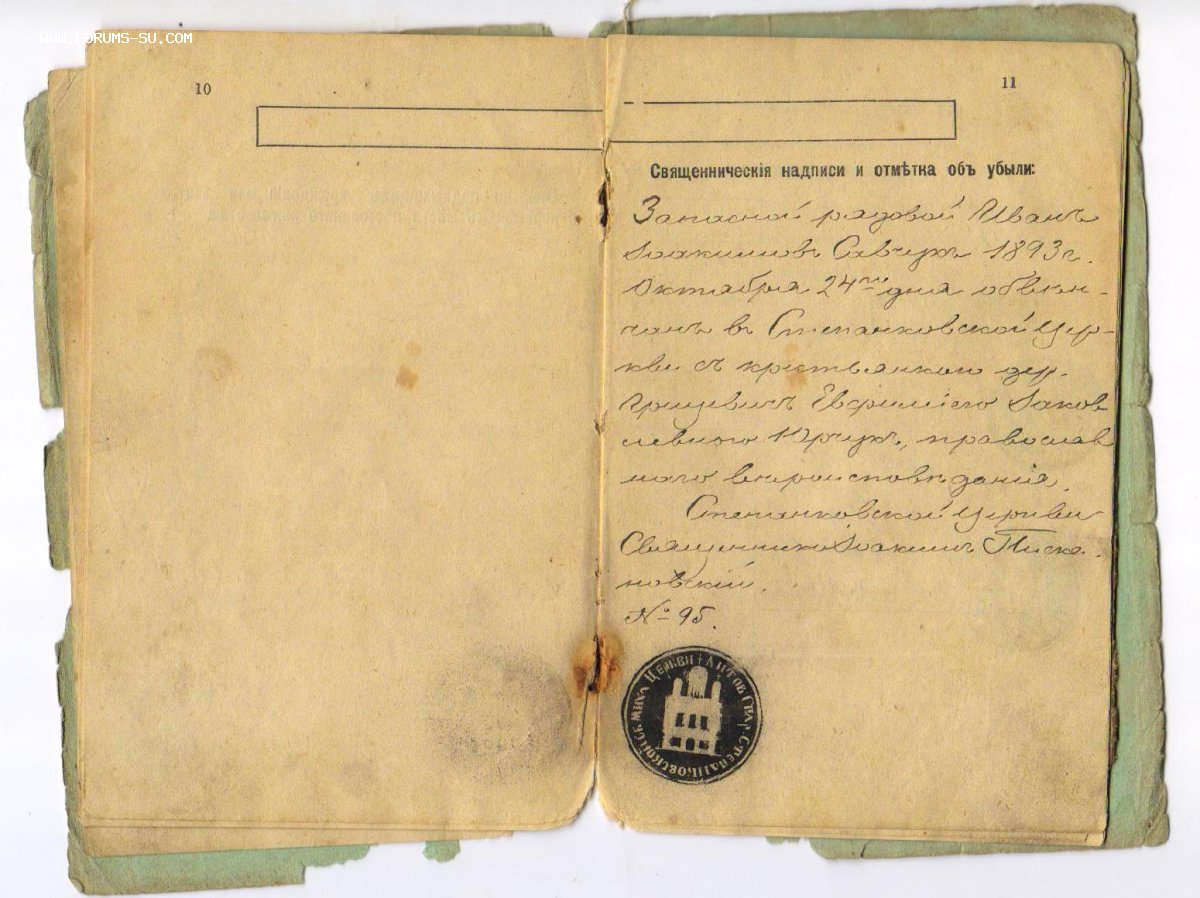 www.forums-su.com
10
11
Священническія надписи и отмѣтка объ убыли:
Запасной рядовой Иванъ
Іоакимовъ Савчукъ 1893 г.
Октября 24го дня обвѣн-
чанъ въ Степанковской Цер-
кви съ крестьянкою дер.
Грицевичъ Евфиміею Яков
левною Юрчукъ, православ
наго вѣроисповѣданія.
Степанковской Церкви
Священникъ Іоакимъ Писка-
новскій.
№ 95.